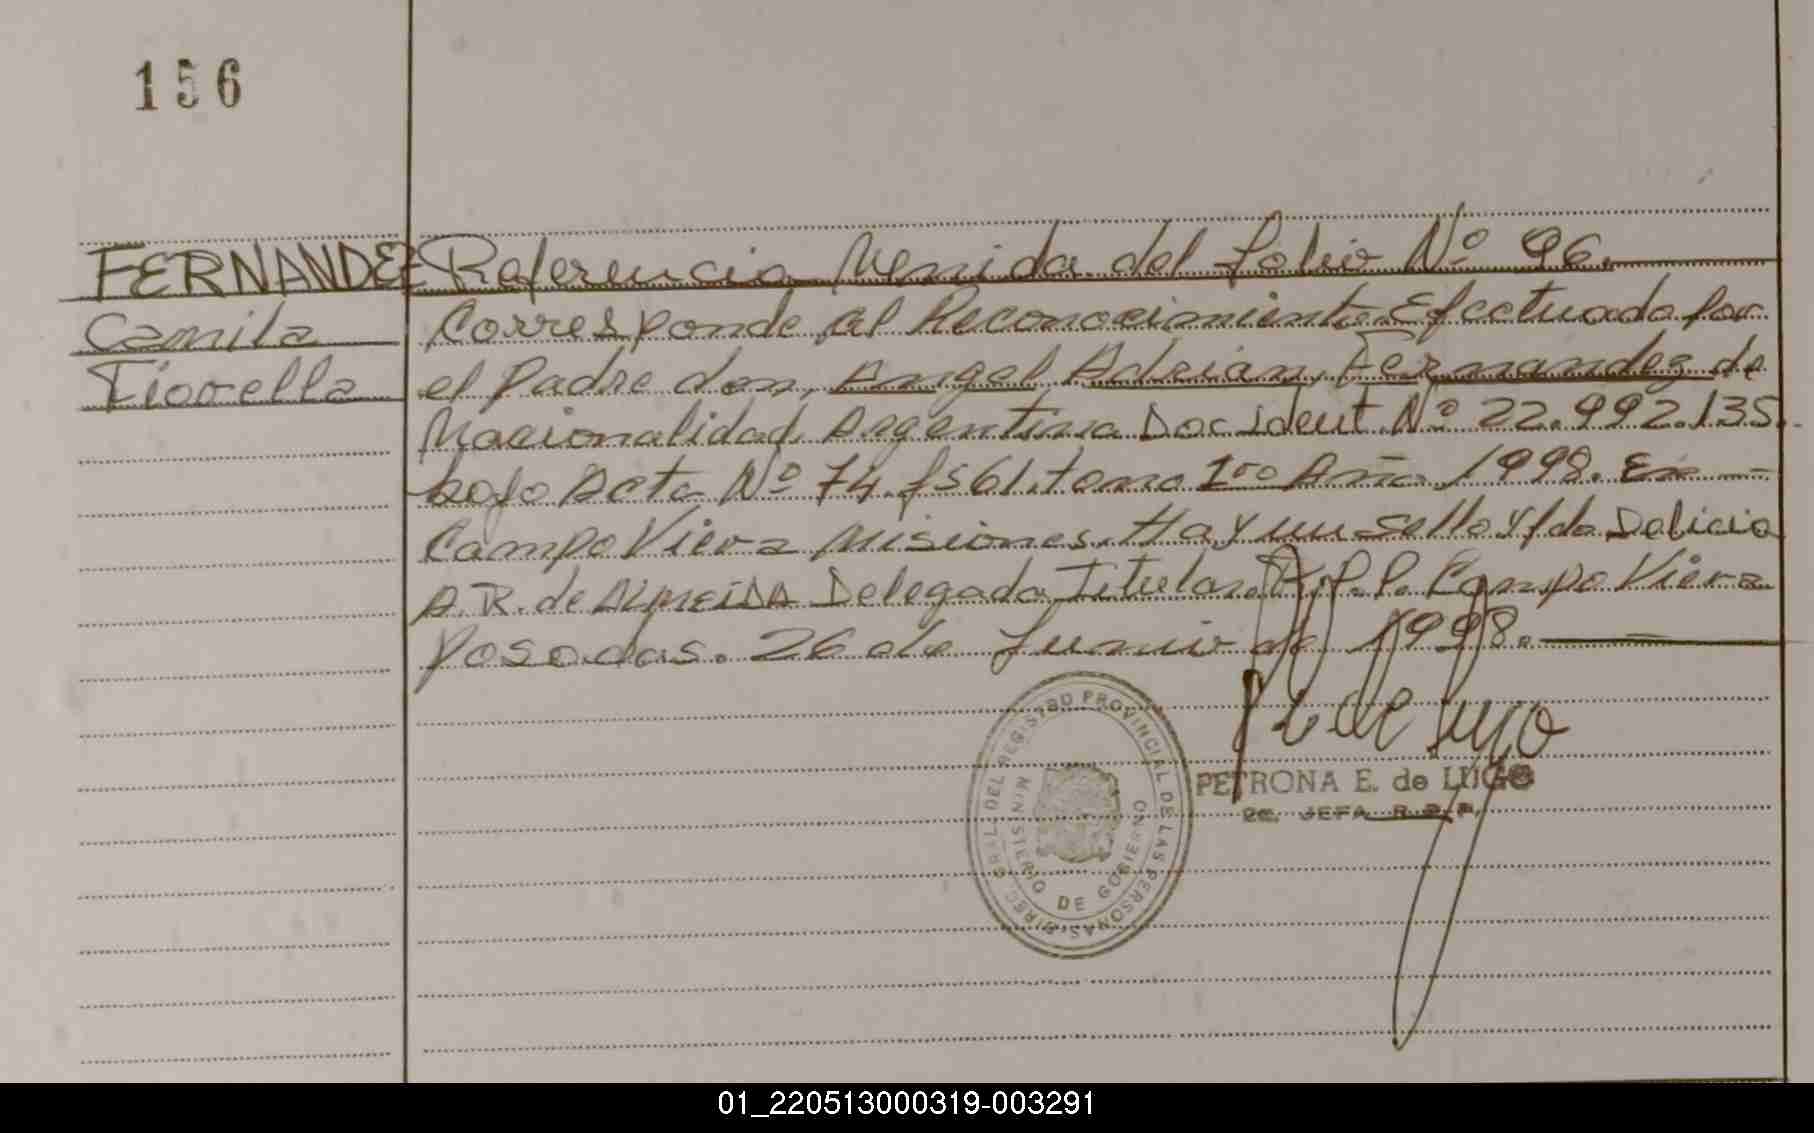 156
FERNANDEZ
Camila
Fiorella
Referencia Venida del folio Nº 96.
Corresponde al Reconocimiento Efectuado por
el Padre don, Angel Adrian, Fernandez de
Nacionalidad Argentina Doc Ident. Nº 22.992.135.
bajo Acta Nº 74. fs 61. tomo 1ro Año 1998. En
Campo Viera Misiones. Hay un sello y fdo Delicia
A.R. de ALMEIDA Delegada Titular. R.P.P. Campo Viera
Posadas. 26 de Junio de 1998.
P E de Lugo
PETRONA E. de LUGO
2C. JEFA R.P.P.
DIREC. GRAL. DEL REGISTRO PROVINCIAL DE LAS PERSONAS
MINISTERIO DE GOBIERNO
01_220513000319-003291